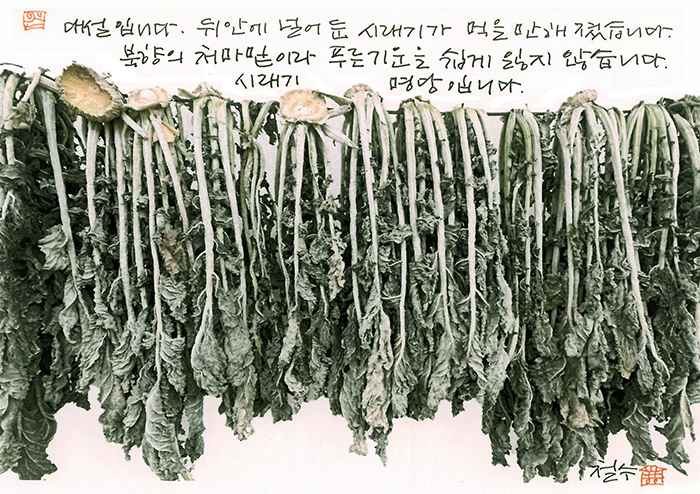 대설입니다. 뒤안에 널어 둔 시래기가 먹을만해졌습니다.
북향의 처마밑이라 푸른기운을 쉽게 잃지 않습니다.
시래기 명당입니다.
철수